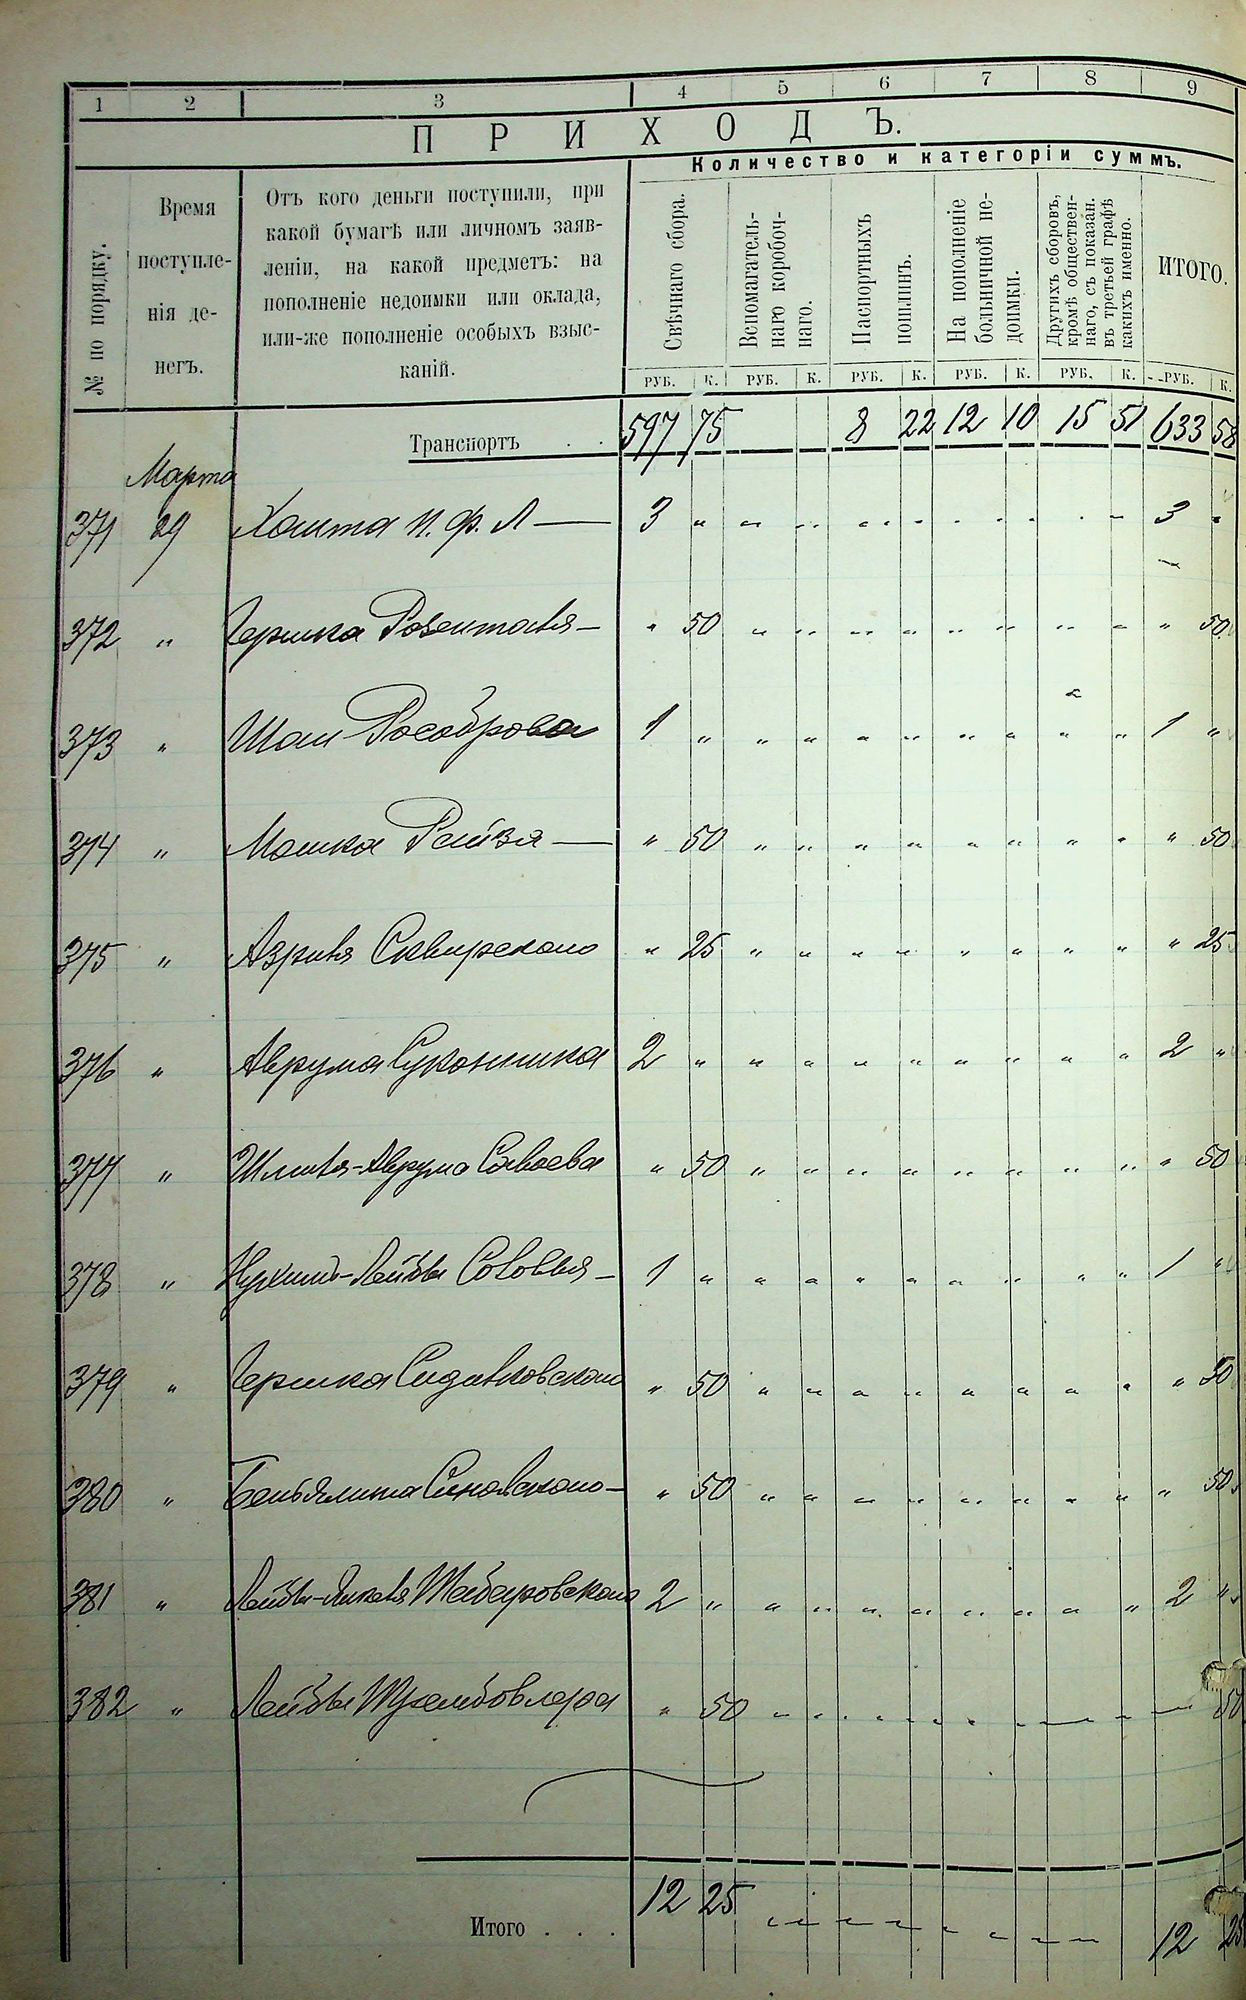 1 2 3 4 5 6 7 8 9
ПРИХОДЪ.
Количество и категоріи суммъ.
№ по порядку.
Время поступле-
нія де-
негъ.
Отъ кого деньги поступили, при
какой бумагѣ или личномъ заяв-
леніи, на какой предметъ: на
пополненіе недоимки или оклада,
или-же пополненіе особыхъ взыс-
каній.
Свѣчнаго сбора.
Вспомагатель-
наго коробоч-
наго.
Паспортныхъ
пошлинъ.
На пополненіе
больничной не-
доимки.
Другихъ сборовъ,
кромѣ обществен-
наго, съ показан.
въ третьей графѣ
какихъ именно.
ИТОГО.
РУБ. К. РУБ. К. РУБ. К. РУБ. К. РУБ. К. РУБ. К.
Транспортъ . . 597 75 8 22 12 10 15 51 633 58
Марта
371 29 п. ф. Л — 3 " " " " " " " " " 3 "
372 " Гершка — " 50 " " " " " " " " " 50
373 " Шаи 1 " " " " " " " " " 1 "
374 " Мошка Рейзя — " 50 " " " " " " " " " 50
375 " Азриля Сквирскаго " 25 " " " " " " " " " 25
376 " Аврума Суконника 2 " " " " " " " " " 2 "
377 " Шмиля-Аврума " 50 " " " " " " " " " 50
378 " Нухима-Лейбы Соловья — 1 " " " " " " " " " 1 "
379 " Гершка " 50 " " " " " " " " " 50
380 " Беньямина — " 50 " " " " " " " " " 50
381 " Лейбы- 2 " " " " " " " " " 2 "
382 " Лейбы " 50 " " " " " " " " 50
Итого . . . 12 25 " " " " " " " " 12 25